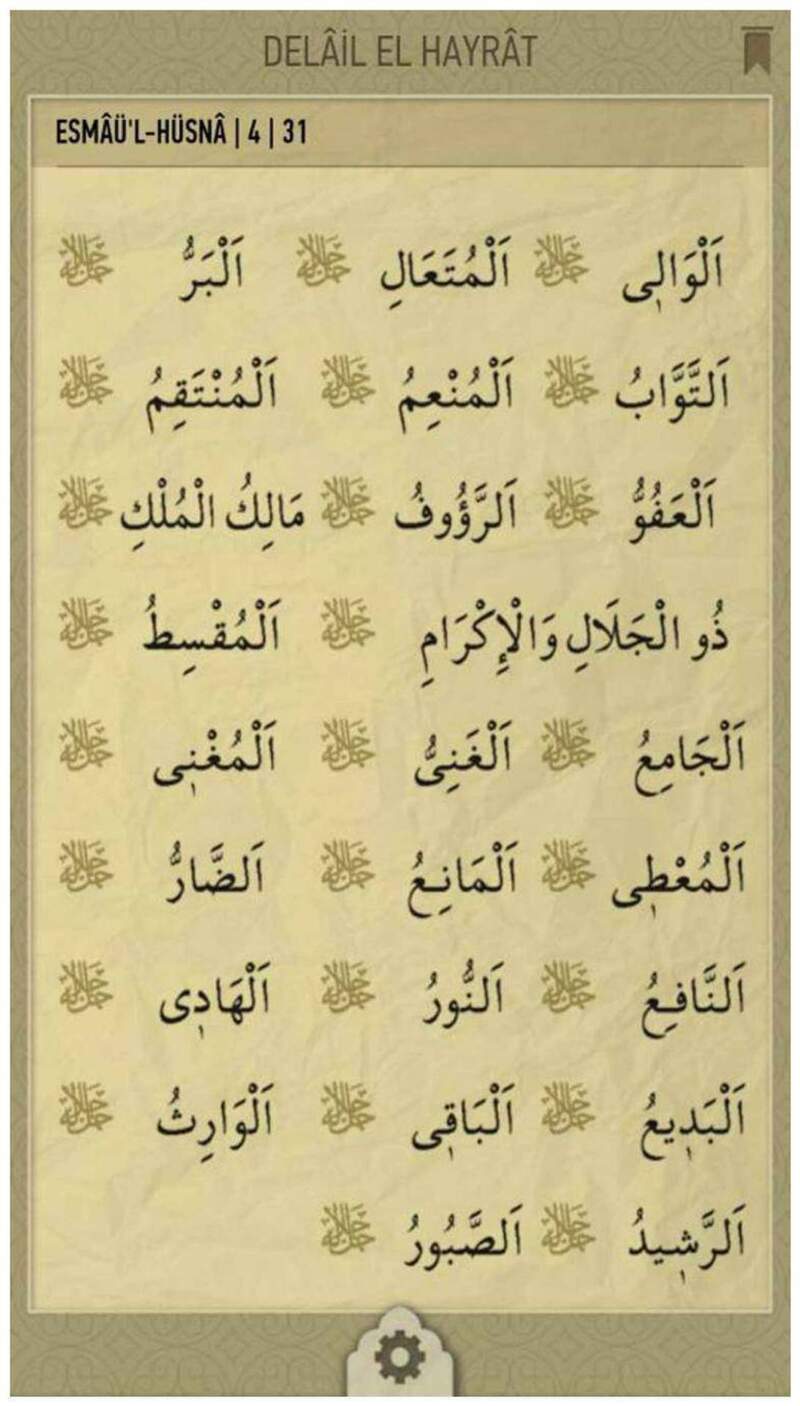 DELÂİL EL HAYRÂT
ESMÂÜ'L-HÜSNÂ | 4 | 31
اَلْوَالٖى جَلَّ جَلَالُهُ اَلْمُتَعَالِ جَلَّ جَلَالُهُ اَلْبَرُّ جَلَّ جَلَالُهُ
اَلتَّوَّابُ جَلَّ جَلَالُهُ اَلْمُنْعِمُ جَلَّ جَلَالُهُ اَلْمُنْتَقِمُ جَلَّ جَلَالُهُ
اَلْعَفُوُّ جَلَّ جَلَالُهُ اَلرَّؤُوفُ جَلَّ جَلَالُهُ مَالِكُ الْمُلْكِ جَلَّ جَلَالُهُ
ذُو الْجَلَالِ وَالْاِكْرَامِ جَلَّ جَلَالُهُ اَلْمُقْسِطُ جَلَّ جَلَالُهُ
اَلْجَامِعُ جَلَّ جَلَالُهُ اَلْغَنِىُّ جَلَّ جَلَالُهُ اَلْمُغْنٖى جَلَّ جَلَالُهُ
اَلْمُعْطٖى جَلَّ جَلَالُهُ اَلْمَانِعُ جَلَّ جَلَالُهُ اَلضَّارُّ جَلَّ جَلَالُهُ
اَلنَّافِعُ جَلَّ جَلَالُهُ اَلنُّورُ جَلَّ جَلَالُهُ اَلْهَادٖى جَلَّ جَلَالُهُ
اَلْبَدٖيعُ جَلَّ جَلَالُهُ اَلْبَاقٖى جَلَّ جَلَالُهُ اَلْوَارِثُ جَلَّ جَلَالُهُ
اَلرَّشٖيدُ جَلَّ جَلَالُهُ اَلصَّبُورُ جَلَّ جَلَالُهُ